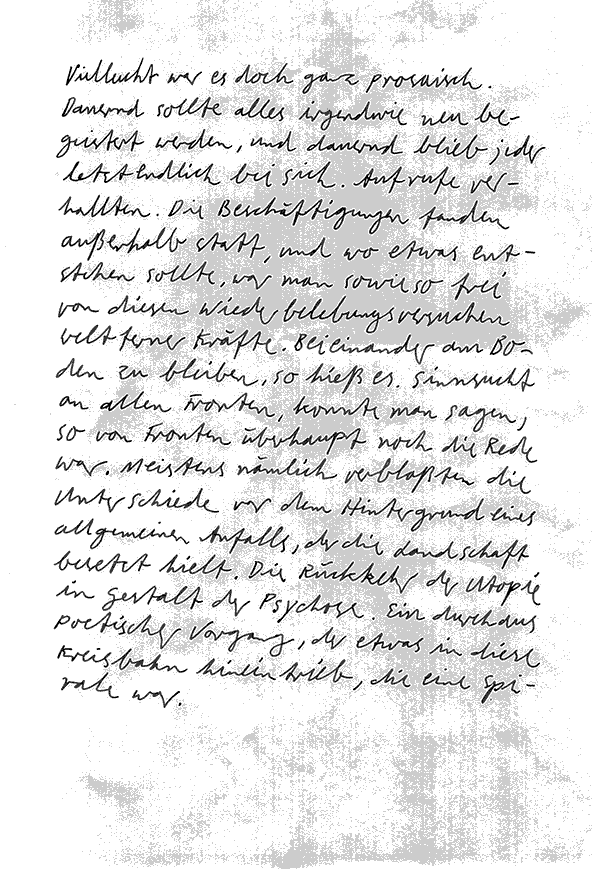 Vielleicht war es doch ganz prosaisch.
Dauernd sollte alles irgendwie neu be-
geistert werden, und dauernd blieb jeder
letztendlich bei sich. Aufrufe ver-
hallten. Die Beschäftigungen fanden
außerhalb statt, und wo etwas ent-
stehen sollte, war man sowieso frei
von diesen Wiederbelebungsversuchen
weltferner Kräfte. Beieinander am Bo-
den zu bleiben, so hieß es. Sinnsucht
an allen Fronten, konnte man sagen,
so von Fronten überhaupt noch die Rede
war. Meistens nämlich verblaßten die
Unterschiede vor dem Hintergrund eines
allgemeinen Anfalls, der die Landschaft
besetzt hielt. Die Rückkehr der Utopie
in Gestalt der Psychose. Ein durchaus
poetischer Vorgang, der etwas in diese
Kreisbahn hineintrieb, die eine Spi-
rale war.